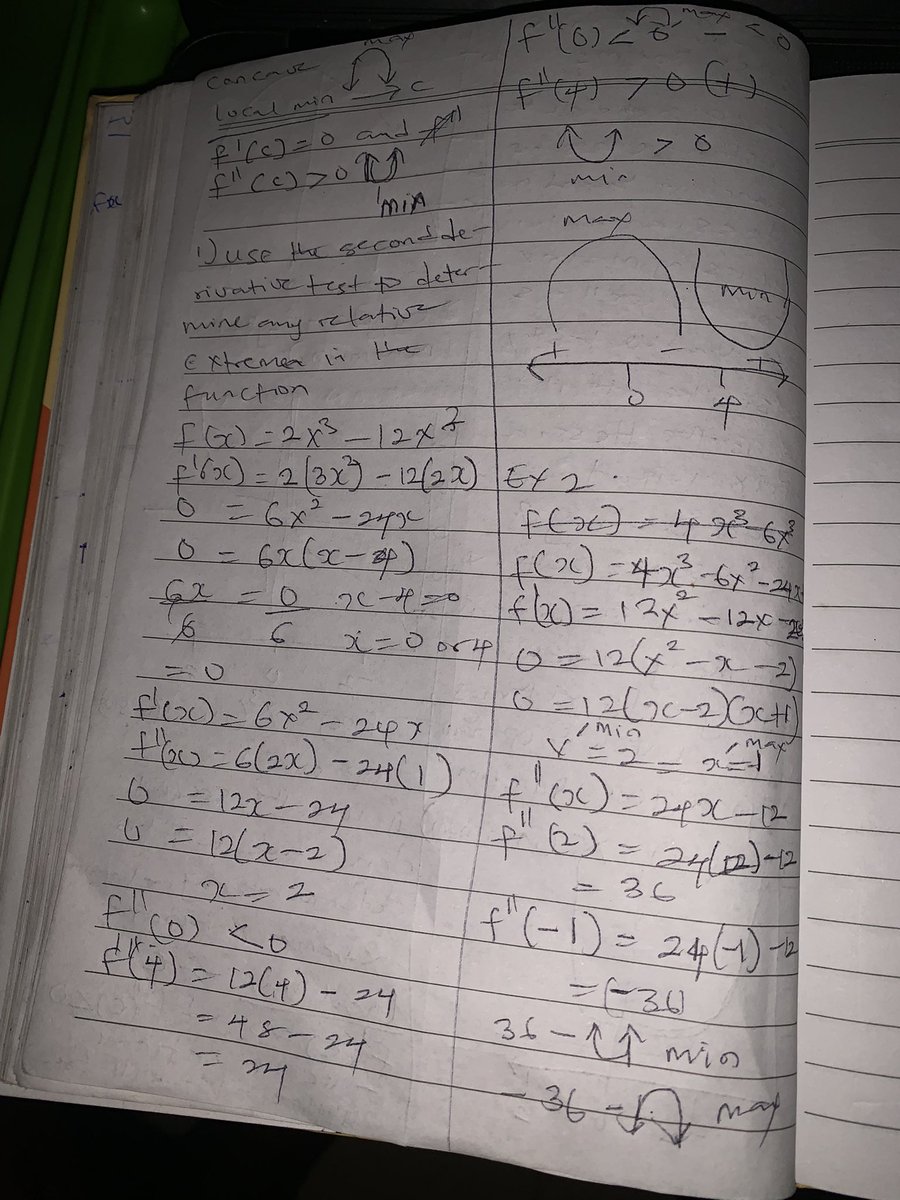 concave max
local min → c
f'(c) = 0 and f''
f''(c) > 0
min
1) use the second de-
rivative test to deter-
mine any relative
Extremea in the
function
f(x) = 2x³ - 12x²
f'(x) = 2(3x²) - 12(2x)
0 = 6x² - 24x
0 = 6x(x - 4)
6x = 0 x - 4 = 0
6 6 x = 0 or 4
= 0
f'(x) = 6x² - 24x
f''(x) = 6(2x) - 24(1)
0 = 12x - 24
0 = 12(x - 2)
x = 2
f''(0) < 0
f''(4) = 12(4) - 24
= 48 - 24
= 24
f''(0) < 0 max < 0
f''(4) > 0 (1)
> 0
min
max
min
+ - +
0 4
Ex 2
f(x) = 4x³ - 6x³
f(x) = 4x³ - 6x² - 24x
f'(x) = 12x² - 12x - 24
0 = 12(x² - x - 2)
0 = 12(x - 2)(x + 1)
min max
x = 2 = x = -1
f''(x) = 24x - 12
f''(2) = 24(2) - 12
= 36
f''(-1) = 24(-1) - 12
= (-36)
36 - ↑↑ min
- 36 - max